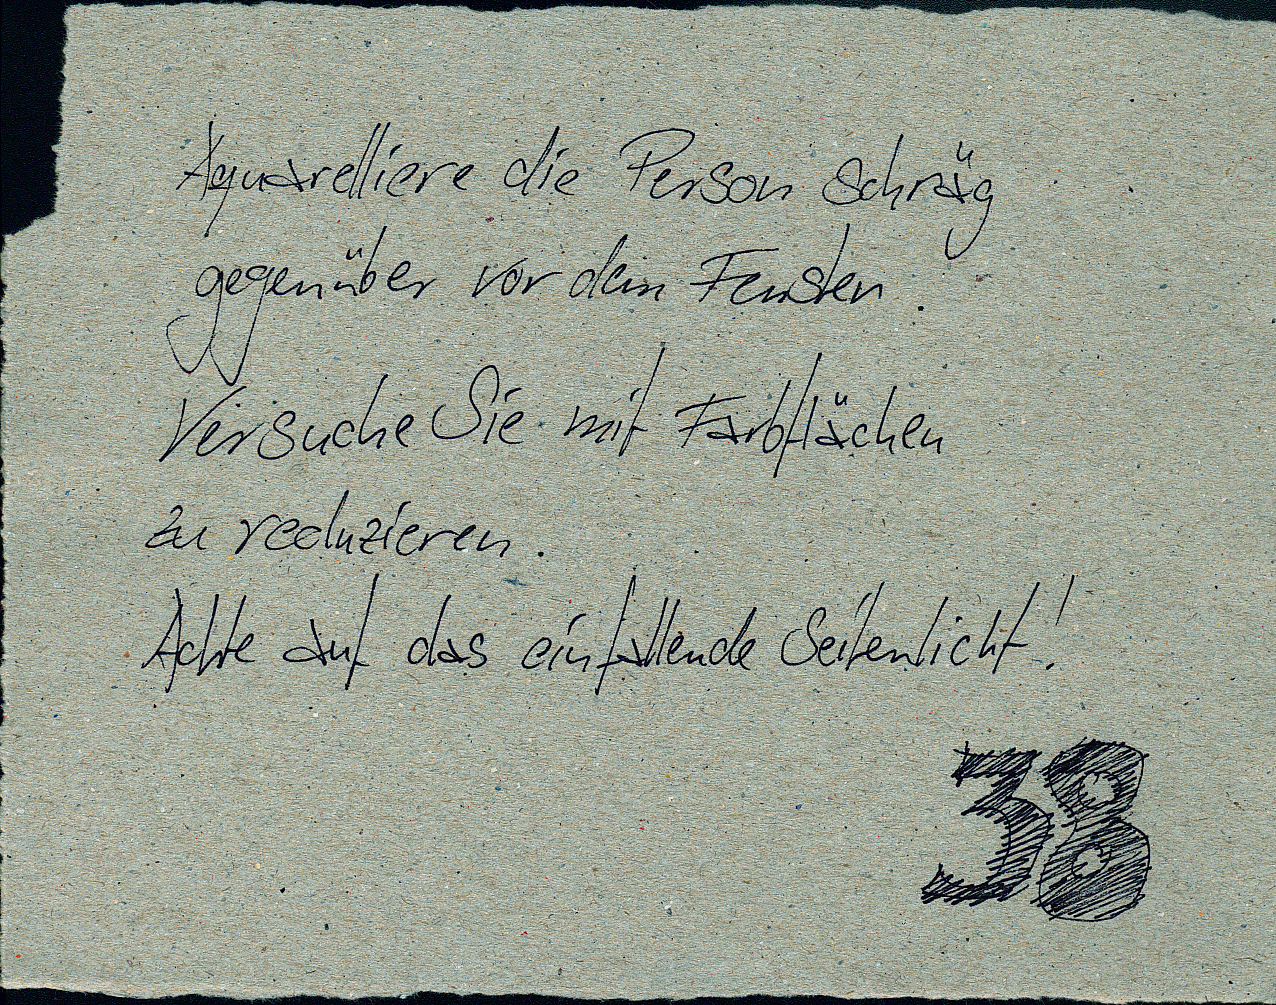 Aquarelliere die Person schräg
gegenüber vor dem Fenster.
Versuche Sie mit Farbflächen
zu reduzieren.
Achte auf das einfallende Seitenlicht!
38